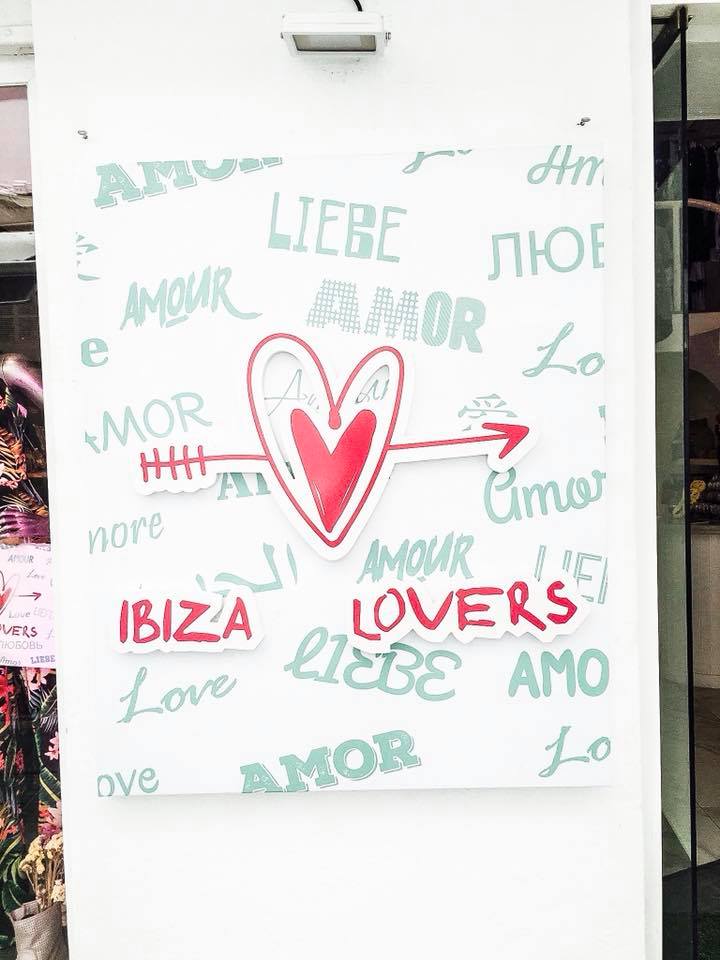 AMOR
Am
LIEBE
ЛЮБ
AMOUR
AMOR
Lo
e
AMOR
愛
Amor
nore
AMOUR
LIE
IBIZA LOVERS
LIEBE
Love
AMO
AMOR
Lo
ove
AMOUR
Love
Love LIEBE
OVERS
ЛЮБОВЬ
LIEBE